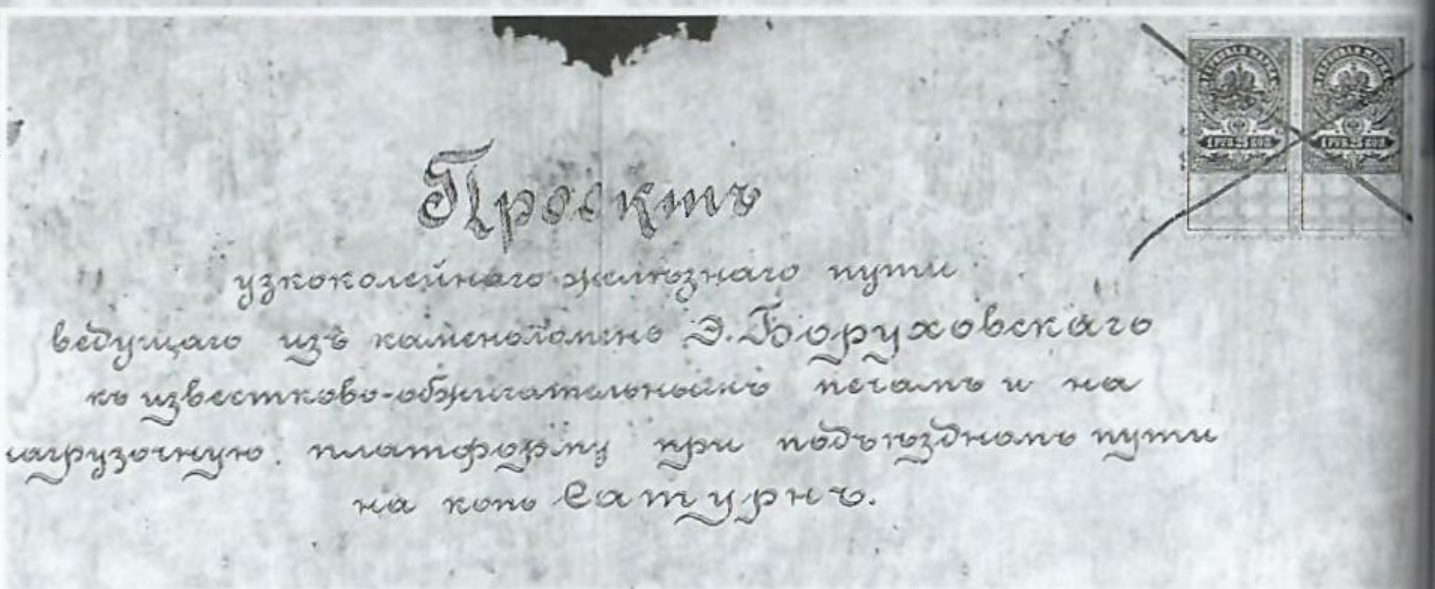 ГЕРБОВАЯ МАРКА ГЕРБОВАЯ МАРКА
1 РУБ. 25 КОП. 1 РУБ. 25 КОП.
Проектъ
узкоколейнаго желѣзнаго пути
ведущаго изъ каменоломень Э. Боруховскаго
къ известково-обжигательнымъ печамъ и на
нагрузочную платформу при подъѣздномъ пути
на копь Сатурнъ.